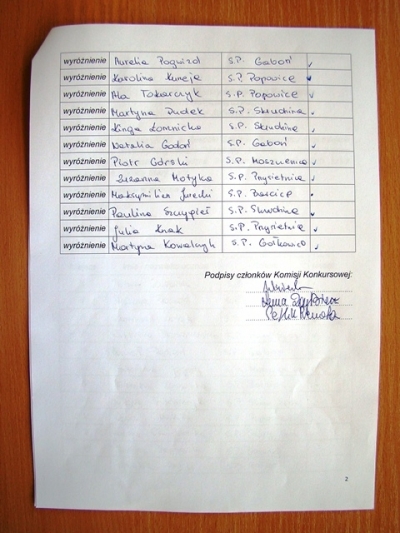 wyróżnienie Aurelia Pogwizd S.P. Gaboń
wyróżnienie Karolina Kureja S.P. Popowice
wyróżnienie Ala Tokarczyk S.P. Popowice
wyróżnienie Martyna Dudek S.P. Skrudzina
wyróżnienie Kinga Łomnicka S.P. Skrudzina
wyróżnienie Natalia Godoń S.P. Gaboń
wyróżnienie Piotr Górski S.P. Moszczenica
wyróżnienie Zuzanna Motyka S.P. Przysietnica
wyróżnienie Maksymilian Jarecki S.P. Barcice
wyróżnienie Paulina Szczypień S.P. Skrudzina
wyróżnienie Julia Knak S.P. Przysietnica
wyróżnienie Martyna Kowalczyk S.P. Gołkowice
Podpisy członków Komisji Konkursowej:
2